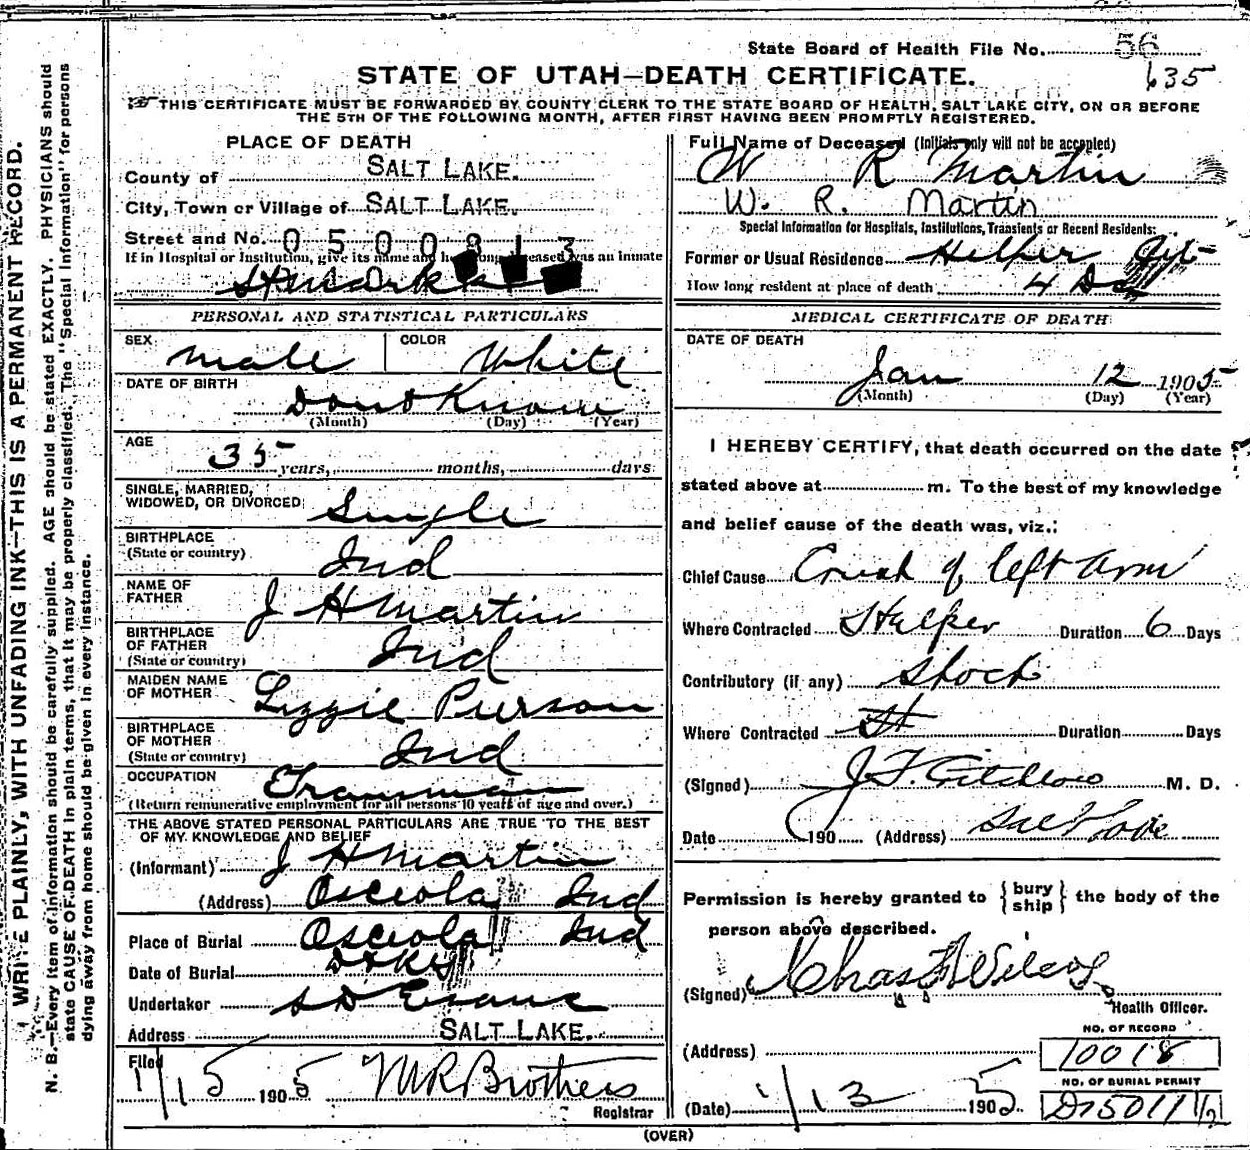 State Board of Health File No. 56
635
STATE OF UTAH—DEATH CERTIFICATE.
THIS CERTIFICATE MUST BE FORWARDED BY COUNTY CLERK TO THE STATE BOARD OF HEALTH, SALT LAKE CITY, ON OR BEFORE
THE 5TH OF THE FOLLOWING MONTH, AFTER FIRST HAVING BEEN PROMPTLY REGISTERED.
WRITE PLAINLY, WITH UNFADING INK—THIS IS A PERMANENT RECORD.
N. B.—Every item of information should be carefully supplied. AGE should be stated EXACTLY. PHYSICIANS should
state CAUSE OF DEATH in plain terms, that it may be properly classified. The "Special Information" for persons
dying away from home should be given in every instance.
PLACE OF DEATH
County of SALT LAKE.
City, Town or Village of SALT LAKE.
Street and No. 0500813
If in Hospital or Institution, give its name and how long deceased was an inmate
St Marks
PERSONAL AND STATISTICAL PARTICULARS
SEX male COLOR White
DATE OF BIRTH Dont Know
(Month) (Day) (Year)
AGE 35 years, months, days.
SINGLE, MARRIED,
WIDOWED, OR DIVORCED Single
BIRTHPLACE
(State or country) Ind
NAME OF
FATHER J H Martin
BIRTHPLACE
OF FATHER
(State or country) Ind
MAIDEN NAME
OF MOTHER Lizzie Pierson
BIRTHPLACE
OF MOTHER
(State or country) Ind
OCCUPATION Trainman
(Return remunerative employment for all persons 10 years of age and over.)
THE ABOVE STATED PERSONAL PARTICULARS ARE TRUE TO THE BEST
OF MY KNOWLEDGE AND BELIEF
(Informant) J H Martin
(Address) Osceola Ind
Place of Burial Osceola Ind
Date of Burial
Undertaker S D Evans
Address SALT LAKE.
Filed 1/15 1905 M R Brothers
Registrar
Full Name of Deceased (Initials only will not be accepted)
W R Martin
W. R. Martin
Special Information for Hospitals, Institutions, Transients or Recent Residents:
Former or Usual Residence Helper
How long resident at place of death 4 Da
MEDICAL CERTIFICATE OF DEATH
DATE OF DEATH
Jan 12 1905
(Month) (Day) (Year)
I HEREBY CERTIFY, that death occurred on the date
stated above at m. To the best of my knowledge
and belief cause of the death was, viz.:
Chief Cause Crush of left arm
Where Contracted Helper Duration 6 Days
Contributory (if any) Shock
Where Contracted Duration Days
(Signed) J. F. M. D.
Date 190 (Address)
Permission is hereby granted to {bury ship} the body of the
person above described.
(Signed) Chas F Wilcox
Health Officer.
NO. OF RECORD
(Address) 10018
NO. OF BURIAL PERMIT
(Date) 1/13 1905 D75011 1/2
(OVER)